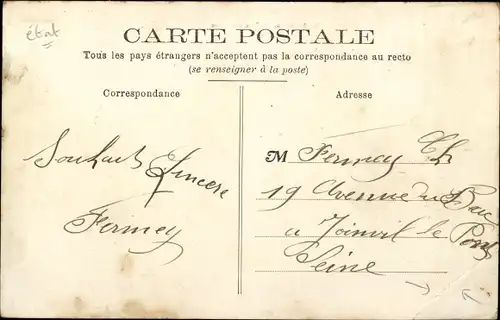 état
CARTE POSTALE
Tous les pays étrangers n'acceptent pas la correspondance au recto
(se renseigner à la poste)
Correspondance
Adresse
Souhaits Sincere
Fermey
M Fermey Ch
19 Avenue du Bac
a Joinvil le Pont
Seine